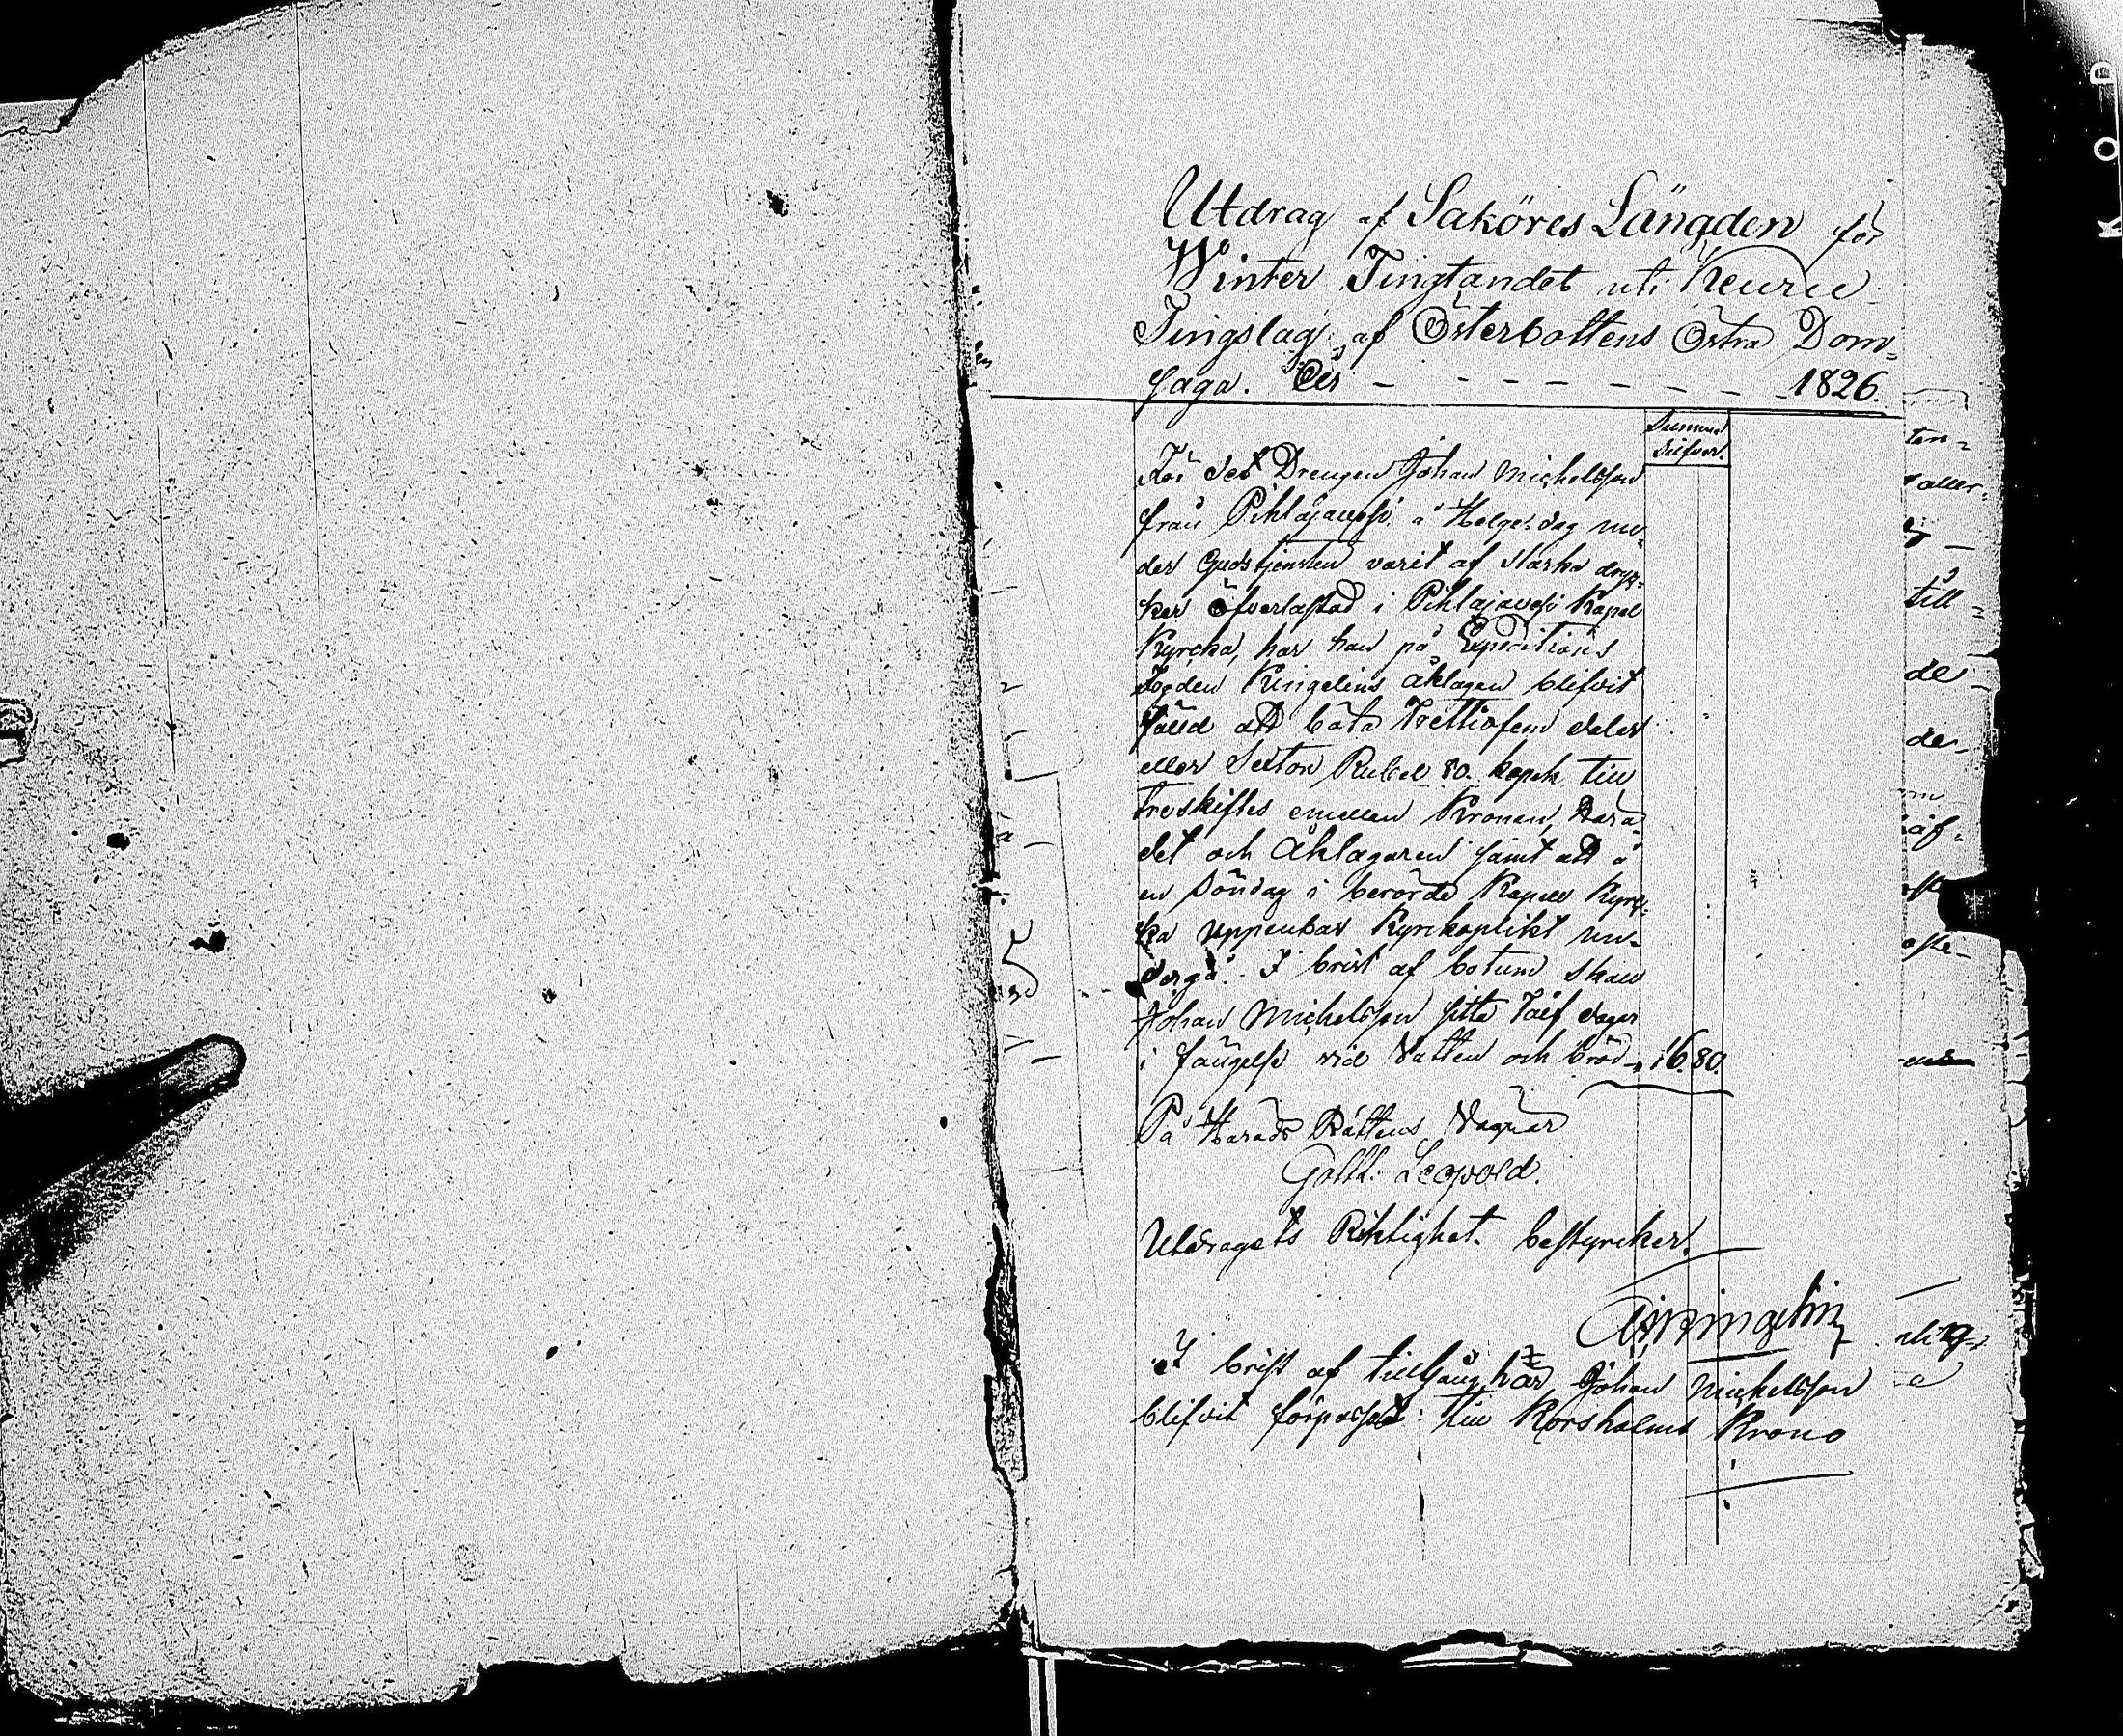 Utdrag af Saköres Längden för
Winter Tingtandet uti Keuru
Tingslag, af Österbottens Östra Dom=
saga. År - - - - - - - - 1826.
Summa
Silfver.
För det Drengen Johan Michelsson
från Pihlajavesi å Helge dag un=
der Gudstjensten varit af starka dryc=
ker öfverlastad i Pihlajavesi Kapel
Kyrcka, har han på Expeditions
Fogden Ringelins åklagan blifvit
fälld att böta Trettiofem daler
eller Sexton Rubel 80. kopek till
treskiftes emellan Kronan, Hära=
det och Åklagaren samt att å
en Söndag i berörde Kapell Kyrc=
ka uppenbar Kyrckoplikt un=
dergå. I brist af botum skall
Johan Michelsson sitta Tolf dagar
i fängelse vid Vatten och bröd - 16. 80.
På Härads Rättens Vägnar
Gottl. Leopold.
Utdragets Riktighet bestyrcker.
I brist af tillgång har Johan Michelsson
blifvit förpassad till Korsholms Krono
K O D